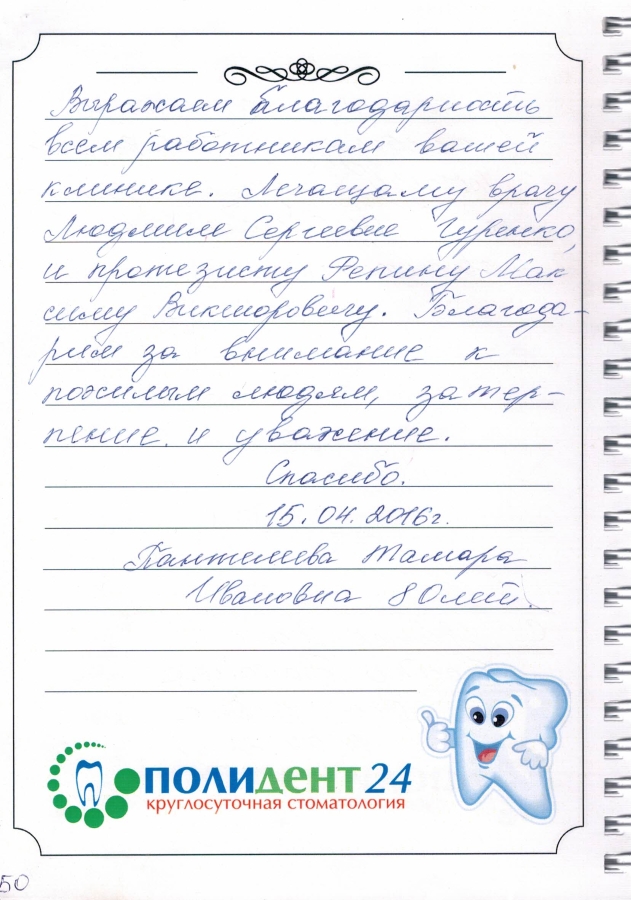 Выражаем благодарность
всем работникам вашей
клинике. Лечащему врачу
Людмиле Сергеевне Гуренко,
и протезисту Репину Мак
симу Викторовичу. Благода-
рим за внимание к
пожилым людям, за тер-
пение и уважение.
Спасибо.
15.04.2016г.
Пантелеева Тамара
Ивановна 80 лет.
ПОЛИДЕНТ 24
круглосуточная стоматология
50